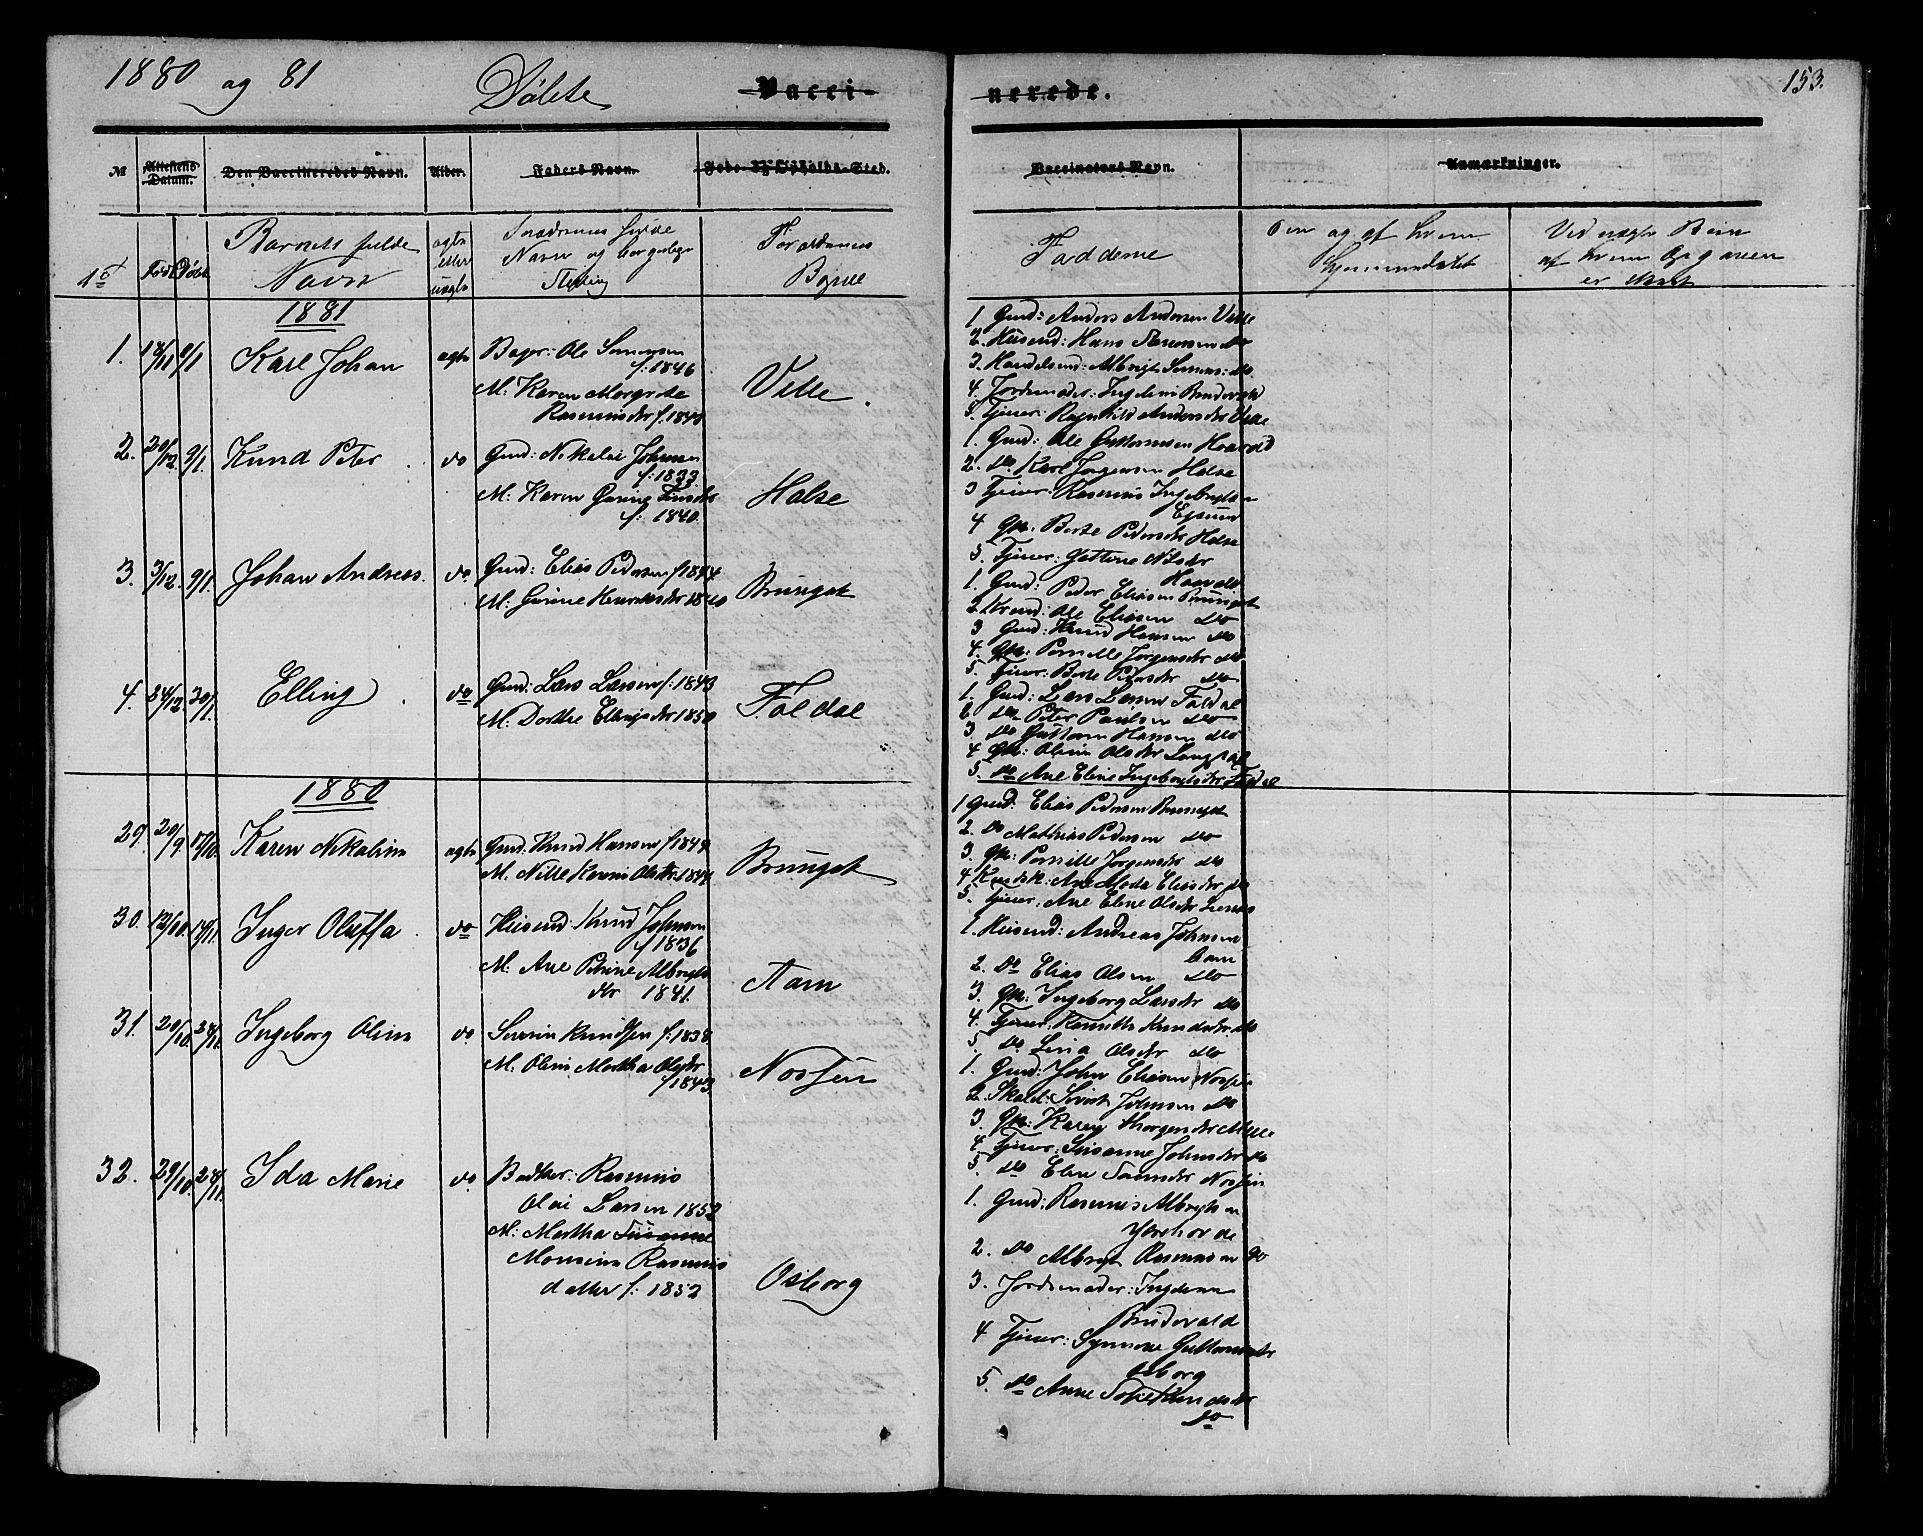 1880 og 81
Døbte
Vacci-
nerede.
153.
№
Attestens Datum.
Den Vaccineredes Navn.
Alder.
Faders Navn.
Føde- og Opholds-Sted.
Vaccinators Navn.
Anmærkninger.
No
Født
Døbt
Barnets fulde
Navn
ægte
eller
uægte
Forældrenes fulde
Navn og borgerlige
Stilling
Forældrenes
Bopæl
Fadderne
Om og af hvem
hjemmedøbt
Ved uægte Børn
af hvem Opgaven
er skeet
1881
1. 18/11 9/1 Karl Johan ægte
Bager: Ole Sørensen
f. 1846
M: Karen Margrete
Velle
1. Gmd: Anders Andersen Velle
2. Husmd: Hans do
4. Jordemoder: Ingelene Brudevold
5. Tjener: Ragnhild Andersdtr Velle
2. 20/12 9/1 Knud Peter do
Gmd: Nikolai Johnsen
f: 1833
M: Karen
f: 1840.
Halse
1. Gmd: Ole Guttormsen Haavold
2. do Karl Jørgensen Halse
3 Tjener: Rasmus Ingebrigtsen
4 Gk: Berte Pedersdtr Halse
5. Tjener: Nilsdtr
Haavold
3. 3/12. 9/1. Johan Andreas. do
Gmd: Elias Pedersen f 1844
M: Hendriksdtr 1840
Brungot
1. Gmd: Peder Eliasen Brungot
2. Ole Eliasen do
3 Gmd: Knud Hansen do
4. Gk: Pernille Jørgensdtr do
5. Tjener: Berte Pedersdtr do
4. 24/12. 30/1. Elling do
Gmd: Lars Larsen f: 1843
M. Dorthe Ellingsdtr 1850
Foldal
1. Gmd: Lars Larsen Foldal
do Peter Paulsen do
3. do Guttorm Hansen do
4 Gk: Oline Olsdtr
5. do Ane Eline Ingebrigtsdtr Foldal
1880
29. 20/9. 17/10. Karen Nikoline ægte
Gmd: Knud Hansen f 1849
M. Nille Karine Olsdtr 1844
Brungot
1 Gmd: Elias Pedersen Brungot
2. do Mathias Pedersen do
3. Gk: Pernille Jørgensdtr do
4 Ane Marta Eliasdtr do
5. Tjener: Ane Eline Olsdtr
30. 12/10. Inger Oluffa do
Husmd: Knud Johnsen
f 1836
M. Ane Petrine Albrigts
dtr 1841.
Aam
1. Husmd: Andreas Johnsen
Aam
2. do Elias Olsen do
3. Gk: Ingeborg Larsdtr do
4. Tjener: Knudsdtr do
5. do Lina Olsdtr do
31. 20/10. 28/11. Ingeborg Oline do
Severin Knudsen f: 1838
M. Oline Martha Olsdtr
f 1843.
Nossen
1. Gmd: John Eliasen Nossen
2. Skold: Sivert Johnsen do
3. Gk: Karen
4. Tjener: Susanne Johnsdtr do
5. do Eline Nossen
32. 29/10. 28/11. Ida Marie do
Bødker: Rasmus
Olai Larsen 1852
M: Martha Susanne
Monsine Rasmus
datter f: 1852
Osborg
1. Gmd: Rasmus Albrigtsen
Yttrehorde
2. do Albrigt Rasmussen do
3. Jordemoder: Ingelene
Brudevold
4 Tjener: Synnøve Guttormsdtr
Osborg
5. do Anne Knudsdtr
do